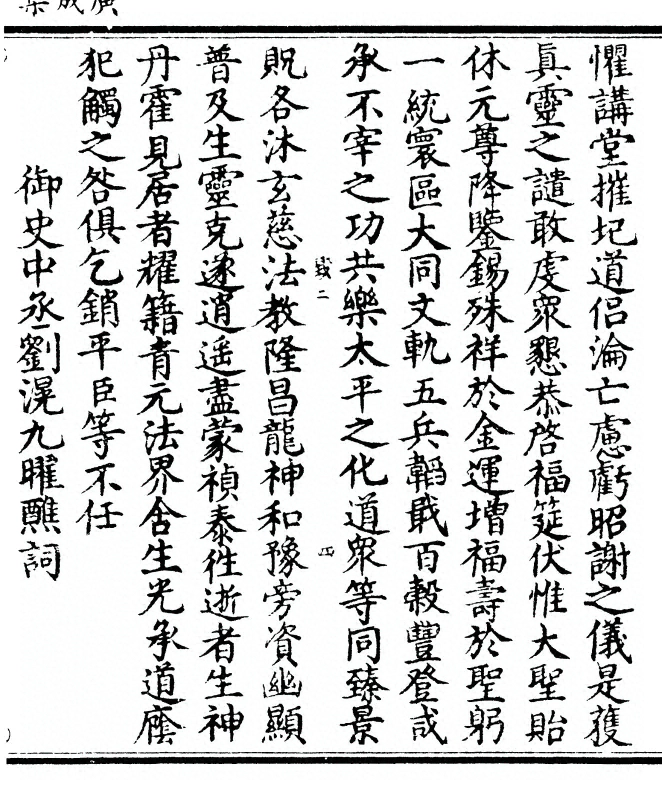 懼講堂摧圯道侣淪亡慮虧昭謝之儀是䕶
眞靈之譴敢虔衆懇恭啓福筵伏惟大聖貽
休元尊降鑒錫殊祥於金運增福壽於聖躬
一統寰區大同文軌五兵韜戢百穀豐登咸
承不宰之功共樂太平之化道衆等同臻景
貺各沐玄慈法教隆昌龍神和豫旁資幽顯
普及生靈克遂逍遥盡蒙禎泰徃逝者生神
丹霍見居者耀籍青元法界含生光承道廕
犯觸之咎俱乞銷平臣等不任
御史中丞劉滉九曜醮詞